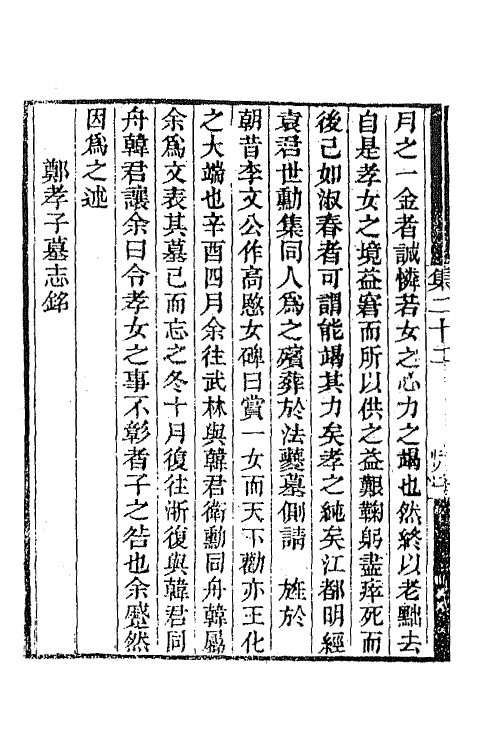 月之一金者誠憐若女之心力之竭也然終以老黜去
自是孝女之境益窘而所以供之益艱鞠躬盡瘁死而
後已如淑春者可謂能竭其力矣孝之純矣江都明經
袁君世勳集同人為之殯葬於法藝墓側請 旌於
朝昔李文公作高愍女碑曰賞一女而天下勸亦王化
之大端也辛酉四月余往武林與韓君衛勳同舟韓屬
余為文表其墓已而忘之冬十月復往浙復與韓君同
舟韓君讓余曰令孝女之事不彰者子之咎也余蹙然
因為之述
鄭孝子墓志銘
集二十二